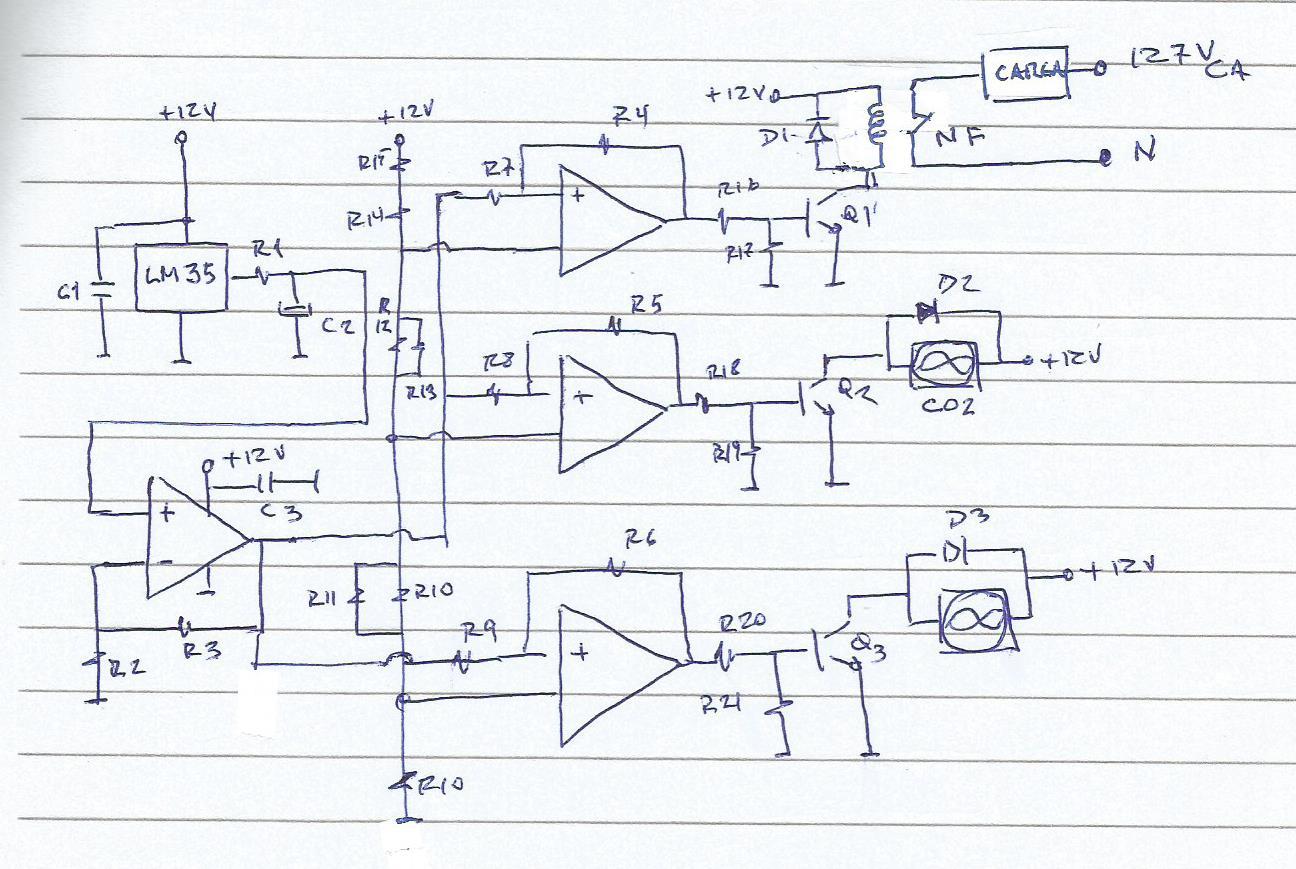 127V CA
CARGA
+12V
D1
NF
N
+12V
+12V
R15
R14
R7
R4
+
R16
R17
Q1
LM35
R1
C1
C2
R12
R13
R8
R5
+
R18
R19
Q2
D2
+12V
CO2
+12V
C3
+
-
R3
R2
R11
R10
R9
R6
+
R20
R21
Q3
D3
+12V
R10